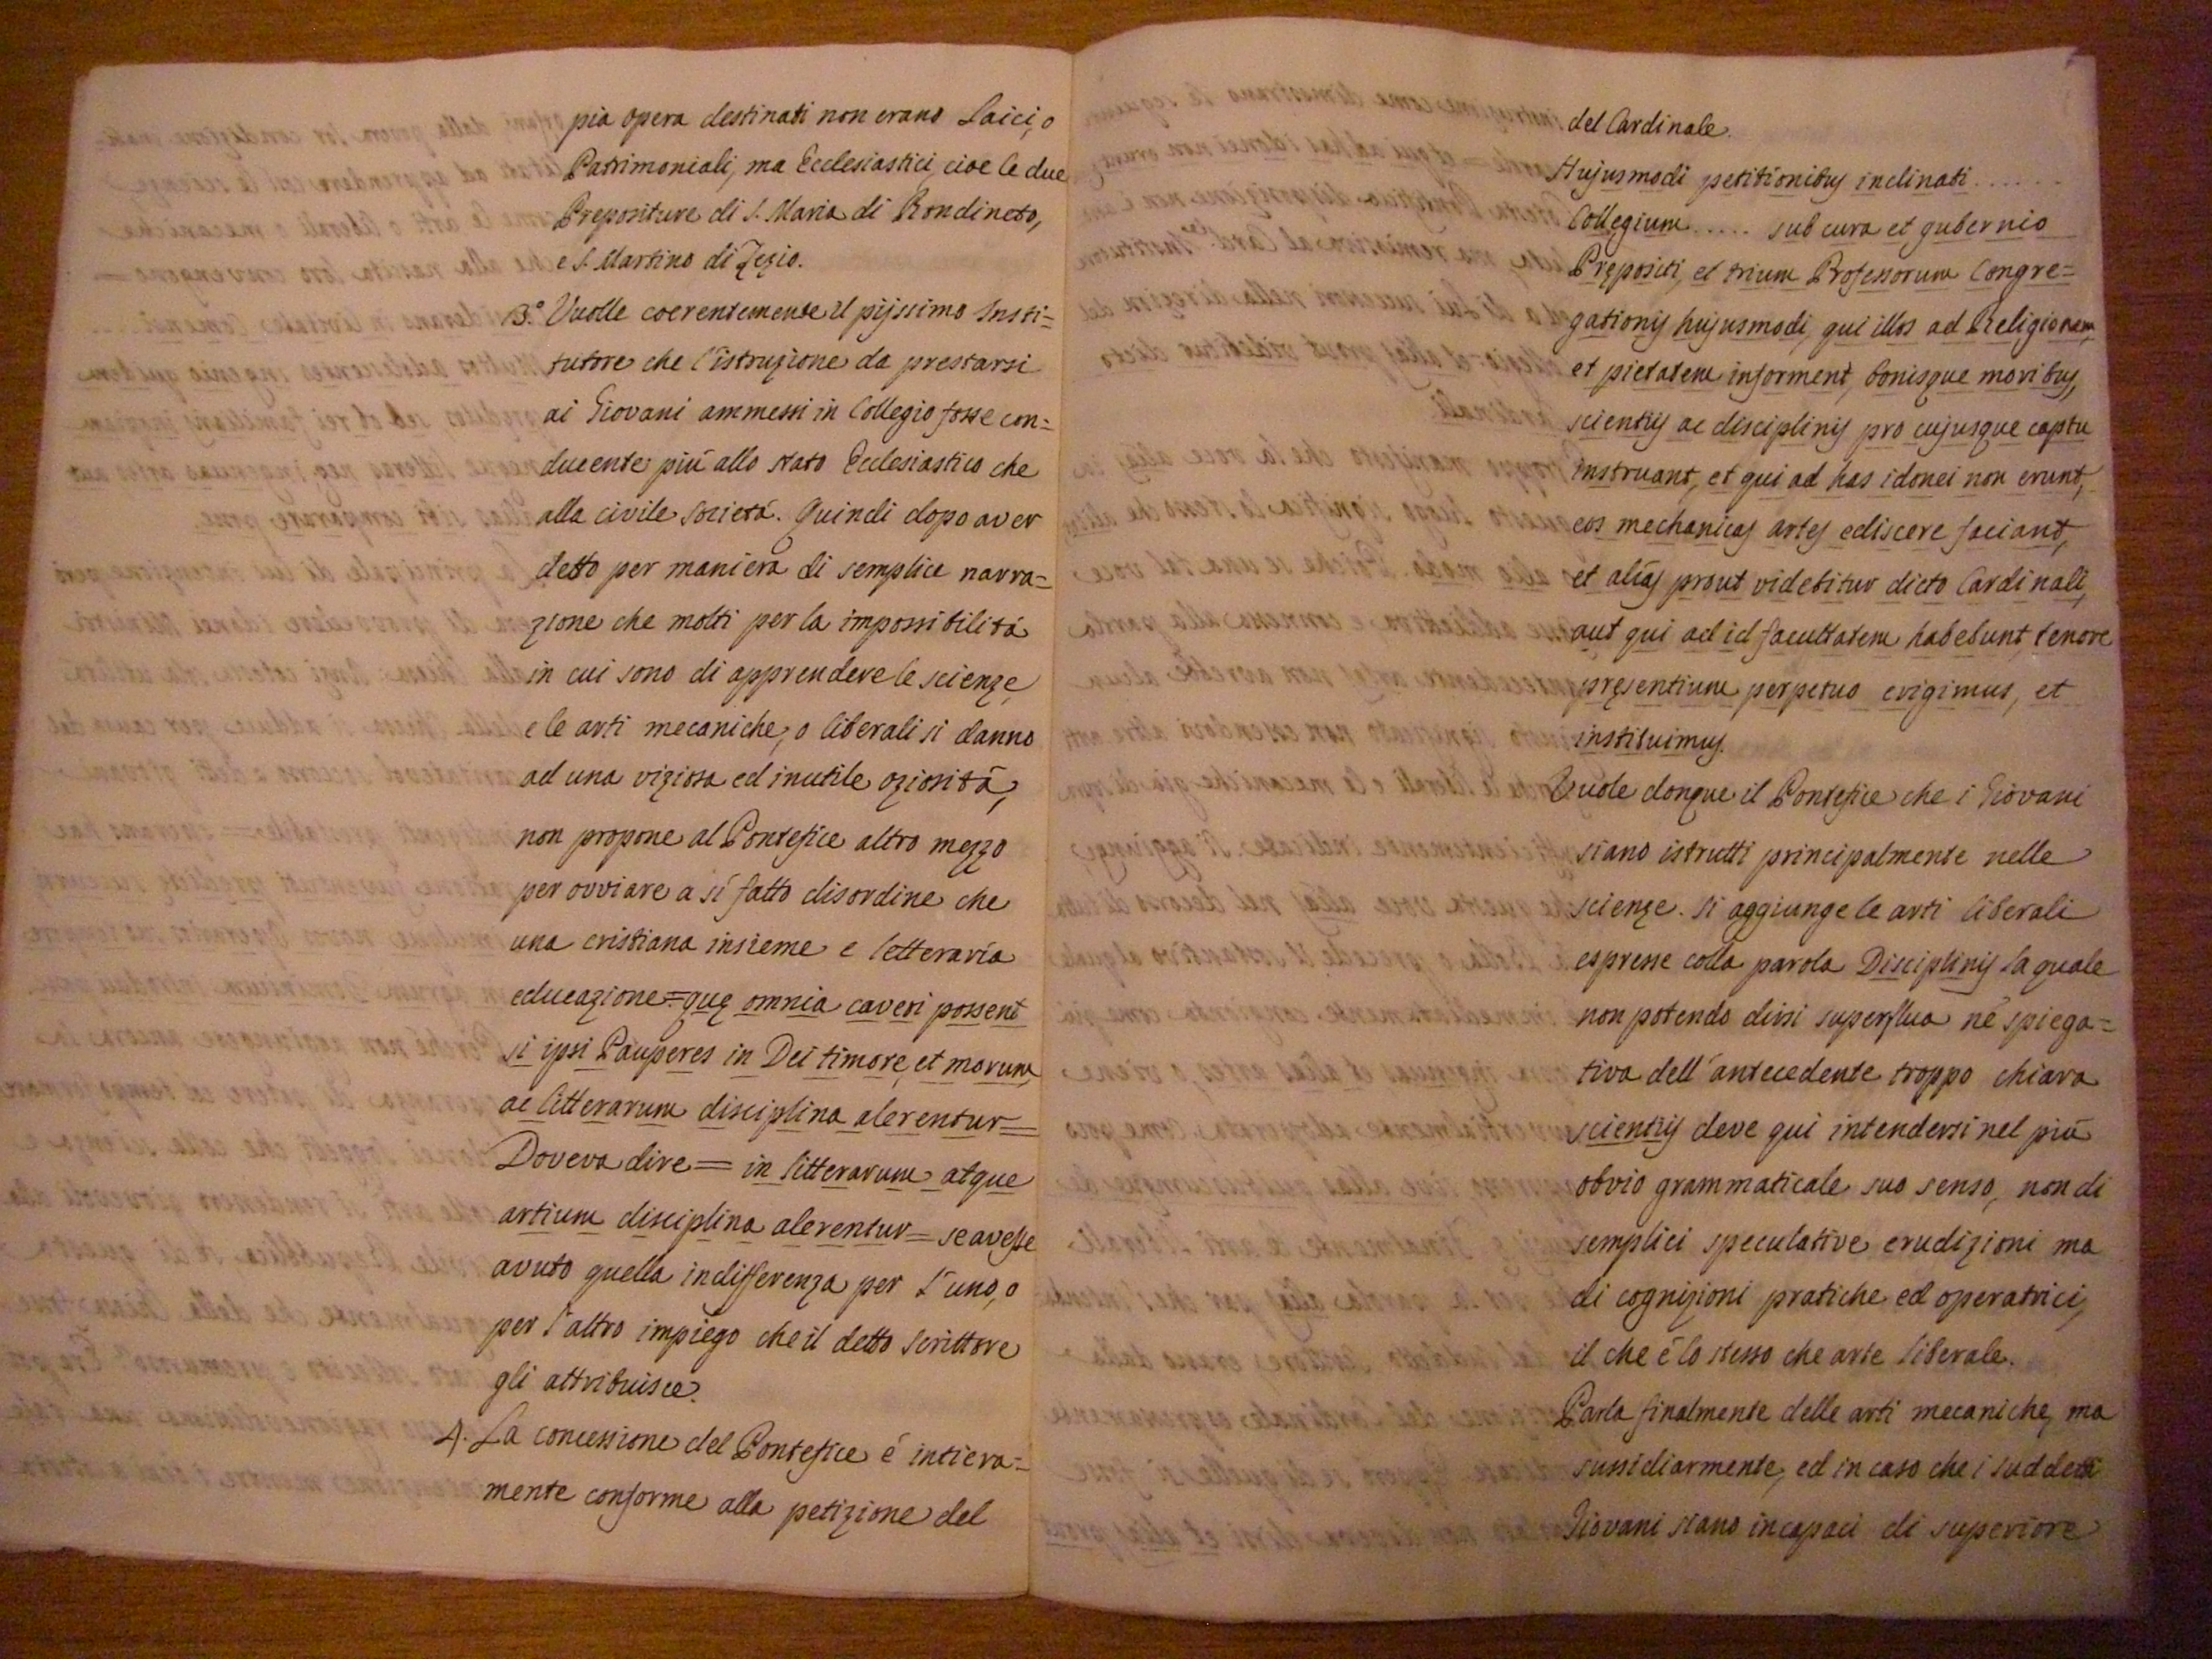 pia opera destinati non erano Laici, o
Patrimoniali, ma Ecclesiastici, cioe le due
Prepositure di S. Maria di Rondineto,
e S. Martino di Zezio.
3.° Vuolle coerentemente il pijssimo Insti=
tutore che l'istruzione da prestarsi
ai Giovani ammessi in Collegio fosse con=
ducente piú allo stato Ecclesiastico che
alla civile società. Quindi dopo aver
detto per maniera di semplice narra=
zione che molti per la impossibilitá
in cui sono di apprendere le scienze,
e le arti mecaniche, o liberali si danno
ad una viziosa ed inutile oziositá,
non propone al Pontefice altro mezzo
per ovviare a sí fatto disordine che
una cristiana insieme e letteraria
educazione = quę omnia caveri possent
si ipsi Pauperes in Dei timore, et morum,
ac litterarum disciplina alerentur =
Doveva dire = in litterarum atque
artium disciplina alerentur = se avesse
avuto quella indifferenza per l'uno, o
per l'altro impiego che il detto Scrittore
gli attribuisce.
4. La concessione del Pontefice é intiera=
mente conforme alla petizione del
del Cardinale.
Hujusmodi petitionibus inclinati ......
Collegium ..... sub cura et gubernio
Prępositi, et trium Professorum Congre=
gationis hujusmodi, qui illos ad Religionem,
et pietatem informent, bonisque moribus,
scientijs ac disciplinis pro cujusque captu
instruant, et qui ad has idonei non erunt,
eos mechanicas artes ediscere faciant,
et aliás prout videbitur dicto Cardinali,
aut qui ad id facultatem habebunt, tenore
pręsentium perpetuo erigimus, et
instituimus.
Vuole donque il Pontefice che i Giovani
siano istrutti principalmente nelle
scienze. Si aggiunge le arti liberali
espresse colla parola Disciplinis la quale
non potendo dirsi superflua né spiega=
tiva dell'antecedente troppo chiara
scientijs deve qui intendersi nel piú
obvio grammaticale suo senso, non di
semplici speculative erudizioni ma
di cognizioni pratiche ed operatrici,
il che é lo stesso che arte liberale.
Parla finalmente delle arti mecaniche, ma
sussidiarmente, ed in caso che i suddetti
Giovani siano incapaci di superiore